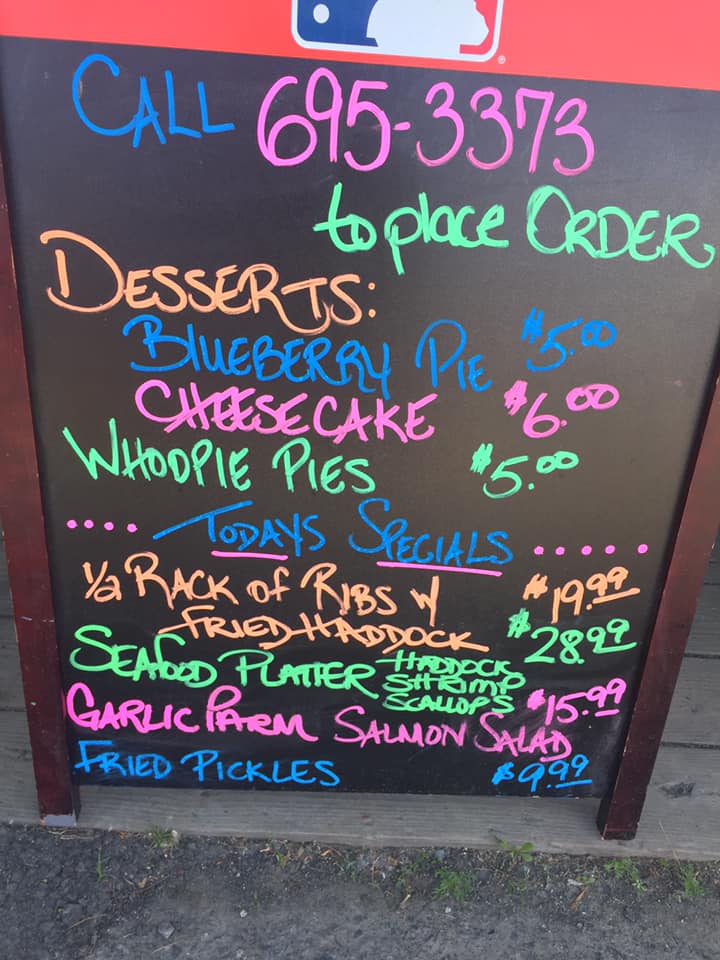 CALL 695-3373
to place ORDER
DESSERTS:
BLUEBERRY PIE $5.00
CHEESECAKE $6.00
WHOOPIE PIES $5.00
.... TODAYS SPECIALS .....
1/2 RACK OF RIBS W/ $19.99
FRIED HADDOCK
SEAFOOD PLATTER HADDOCK SHRIMP SCALLOPS $28.99
GARLIC PARM SALMON SALAD $15.99
FRIED PICKLES $9.99